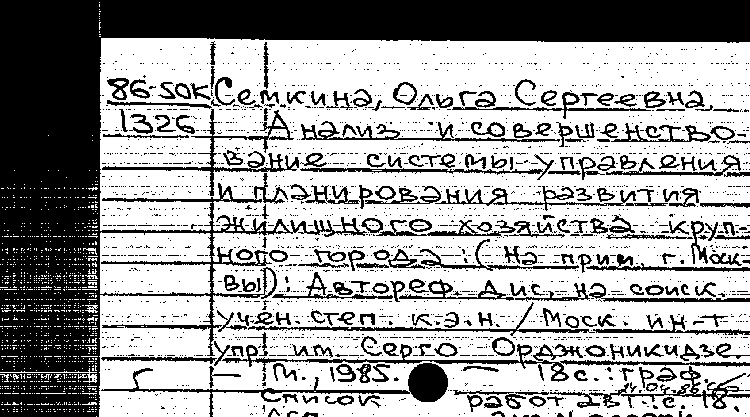 86-50к Семкина, Ольга Сергеевна.
1326 Анализ и совершенство-
вание системы управления
и планирования развития
жилищного хозяйства круп-
ного города : (На прим. г. Моск-
вы) : Автореф. дис. на соиск.
учен. степ. к.э.н. / Моск. ин-т
упр. им. Серго Орджоникидзе.
— М., 1985. — 18 с. : граф
Список работ авт.: с. 18.